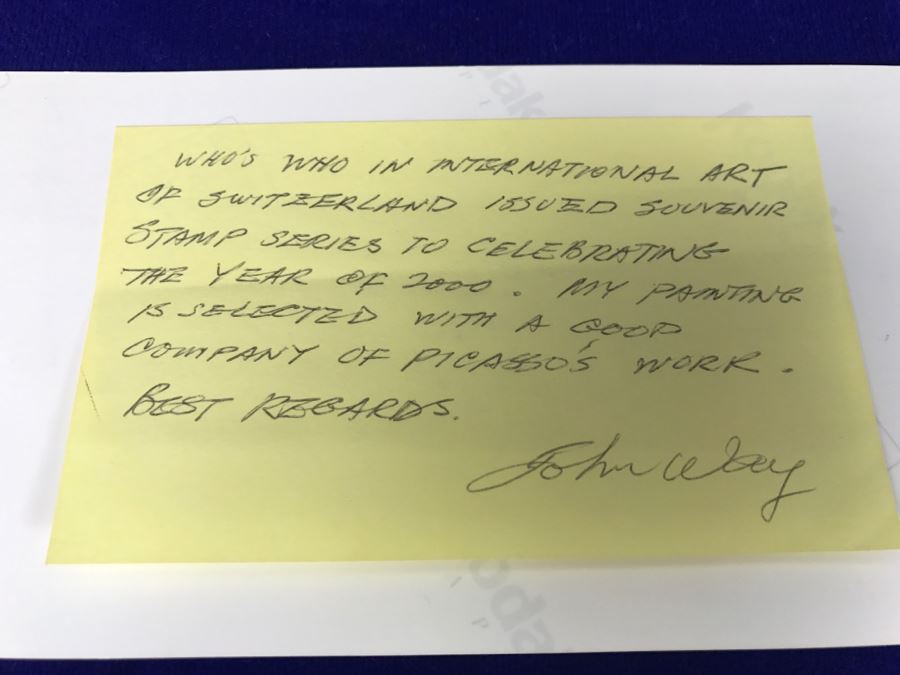 WHO'S WHO IN INTERNATIONAL ART
OF SWITZERLAND ISSUED SOUVENIR
STAMP SERIES TO CELEBRATING
THE YEAR OF 2000. MY PAINTING
IS SELECTED WITH A GOOD
COMPANY OF PICASSO'S WORK.
BEST REGARDS.
John Way